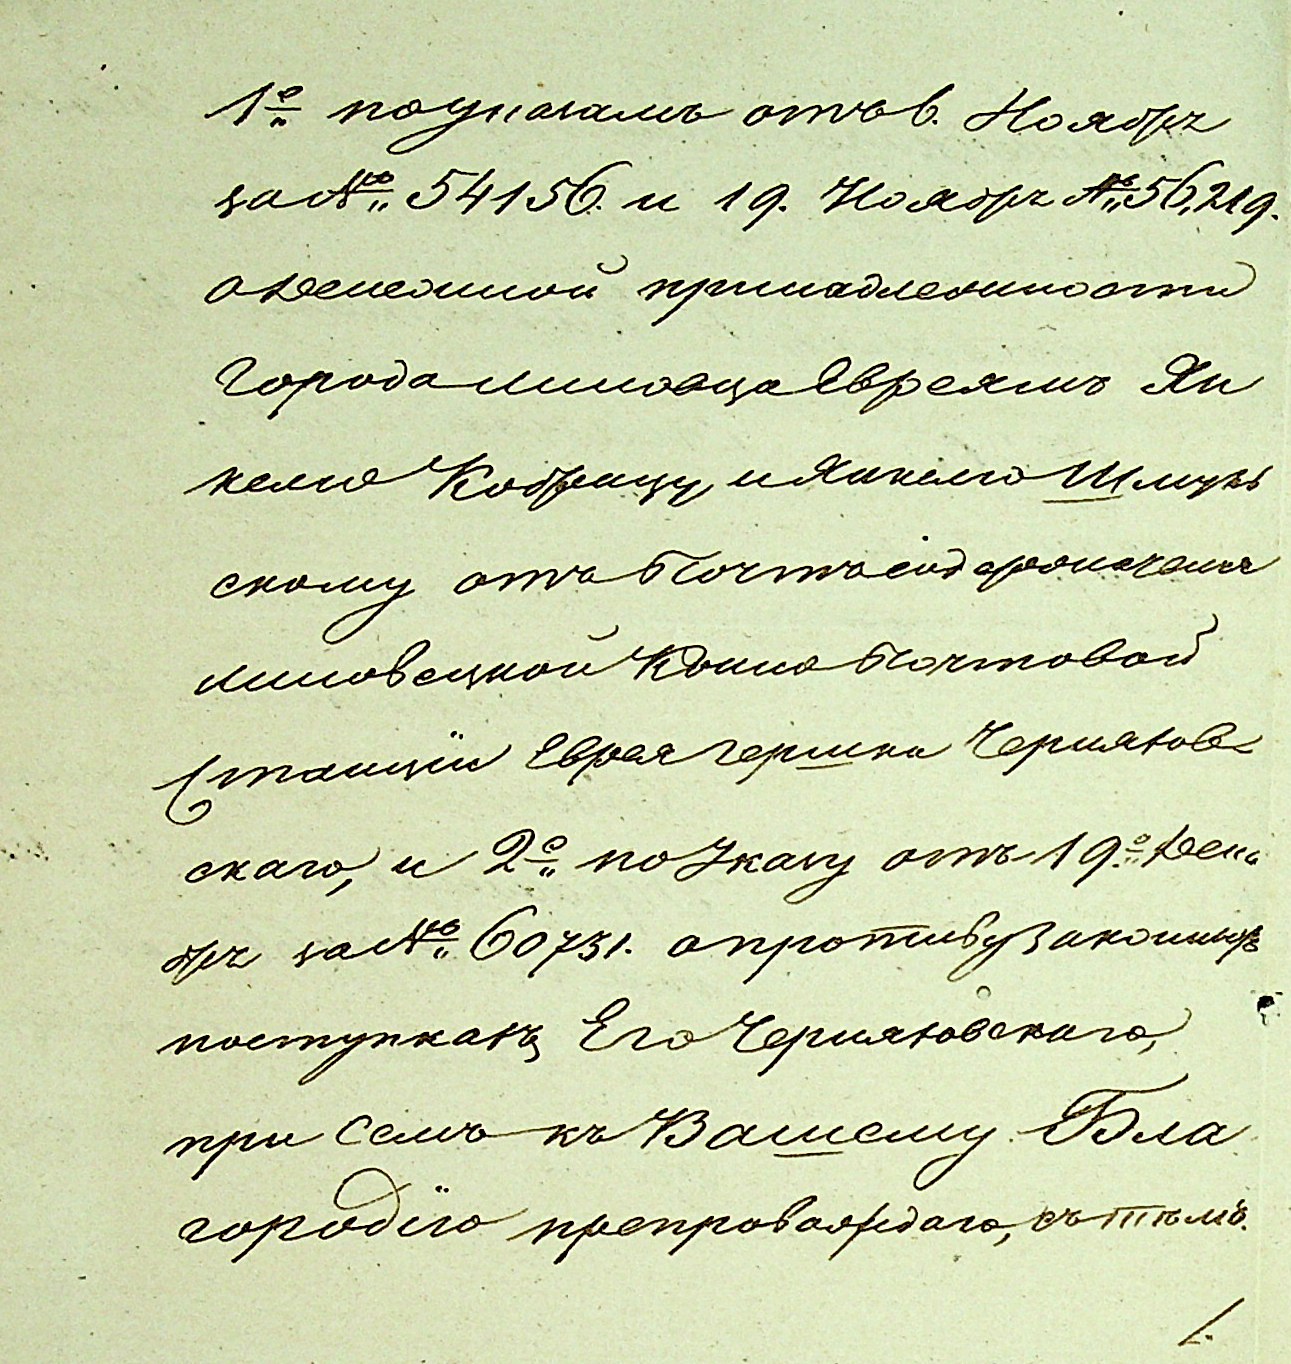 1е по указамъ отъ 8. Ноябр.
за № 54156. и 19. Ноябр. № 56,219.
о денежной принадлежности
города Липовца Евреямъ Ян
келю Кобрицу и Янкелю Шмук
скому отъ Почтъ содержателя
Липовецкой Конно Почтовой
Станціи Еврея Гершка Черняхов-
скаго, и 2е по Указу отъ 19го Дека
бр. за № 60731. о противузаконныхъ
поступкахъ Его Черняховскаго,
при семъ къ Вашему Бла
городію препровождаю, съ тѣмъ.